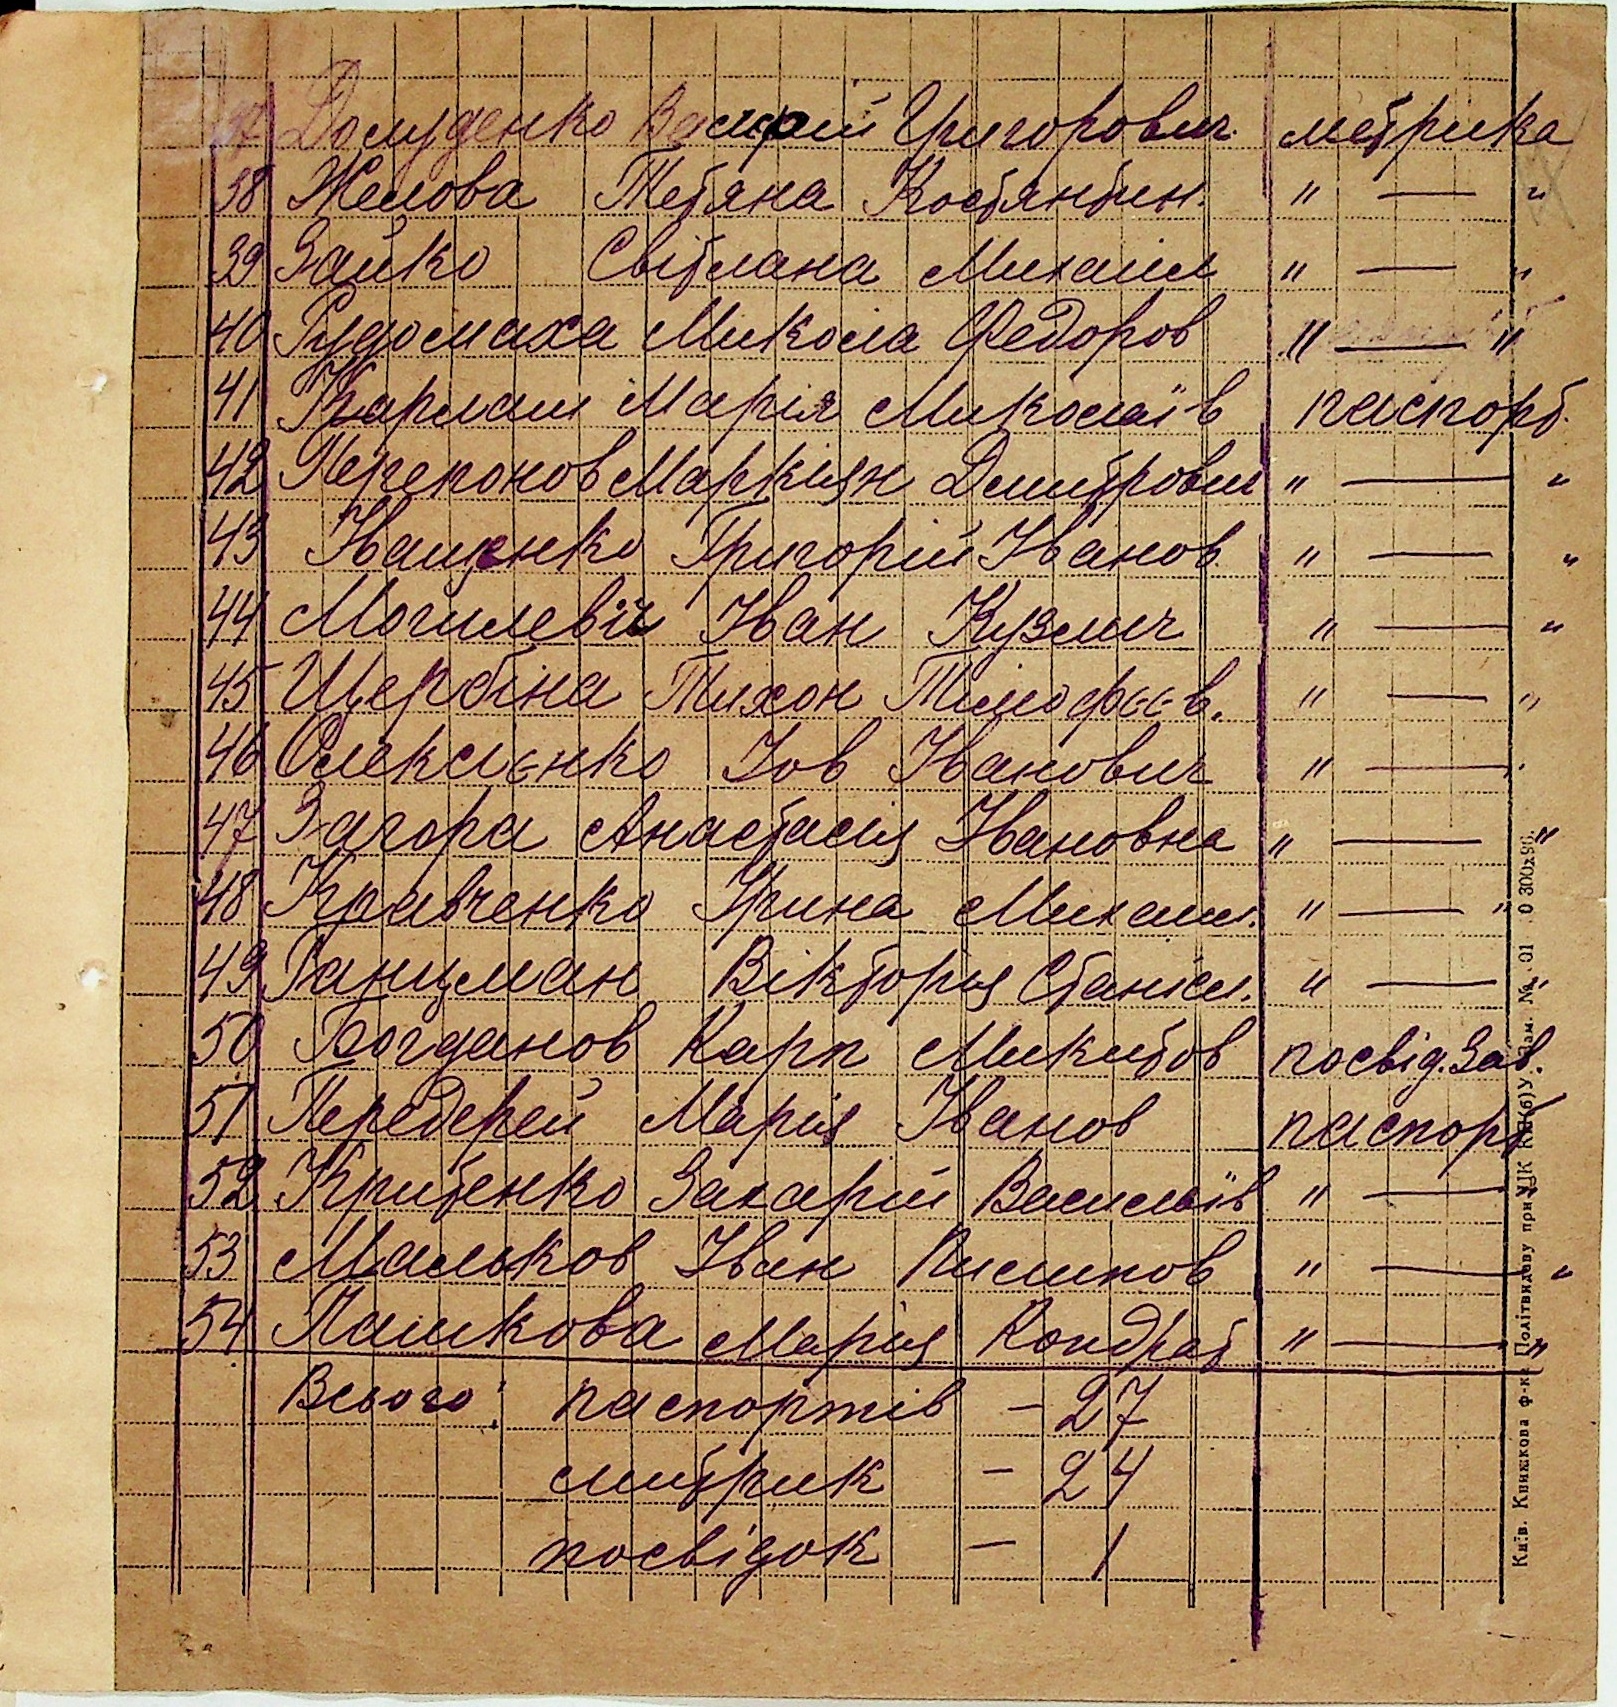 37 Долуденко Василій Григорович метрика
38 Желова Тетяна Костянтин. " — "
39 Зайко Світлана Михаіл " — "
40 Рудомаха Микола Федоров " — "
41 Карлаш Марія Миколаїв паспорт.
42 Перепонов Маркіян Дмитрович " — "
43 Іващенко Григорій Іванов " — "
44 Могилевіч Іван Кузмич " — "
45 Щербіна Тихон Тімофєєв. " — "
46 Олексієнко Іов Іванович " — "
47 Загора Анастасія Івановна " — "
48 Кравченко Ірина Михаил. " — "
49 Ганцман Вікторія Станісл. " — "
50 Богданов Карп Микитов посвід. Зав.
51 Передерей Марія Іванов паспорт
52 Критенко Захарій Васильїв " — "
53 Мальков Іван " — "
54 Пашкова Марія Кондрат " — "
Всього: паспортів - 27
митрик - 24
посвідок - 1
Київ. Книжкова ф-ка Політвидаву при ЦК КП(б)У Зам. №